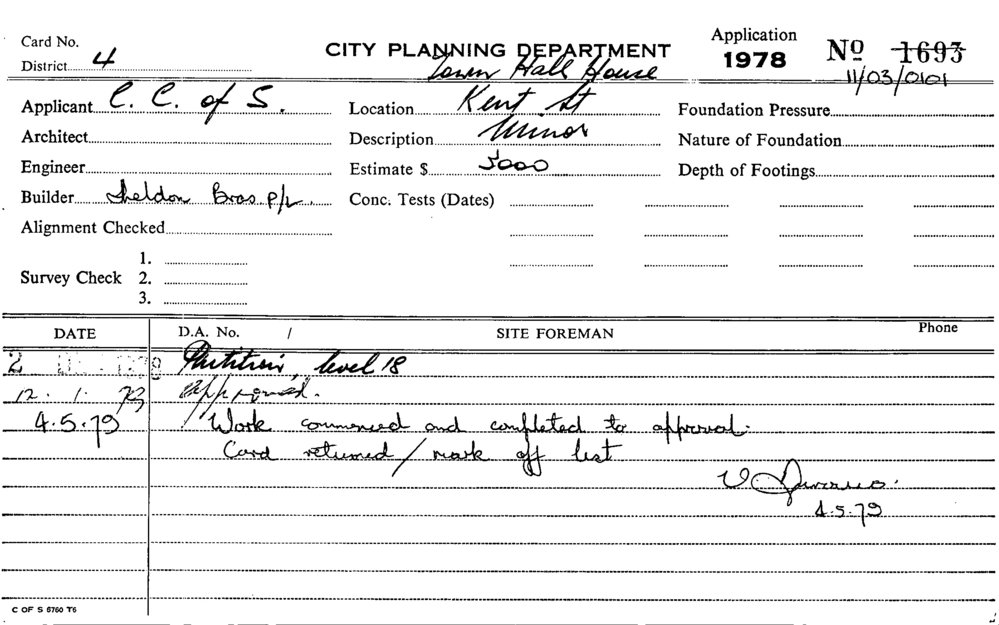 Card No.
District 4
CITY PLANNING DEPARTMENT
Application
1978
Nº 1693
11/03/0101
Town Hall House
Applicant C. C. of S.
Location Kent St
Foundation Pressure
Architect
Description Minor
Nature of Foundation
Engineer
Estimate $ 5000
Depth of Footings
Builder Sheldon Bros P/L
Conc. Tests (Dates)
Alignment Checked
Survey Check
1.
2.
3.
DATE
D.A. No. /
SITE FOREMAN
Phone
Partition, level 18
12. 1. 79 approved.
4.5.79 Work commenced and completed to approval.
Card returned / mark off list
4.5.79
C OF S 6760 T6